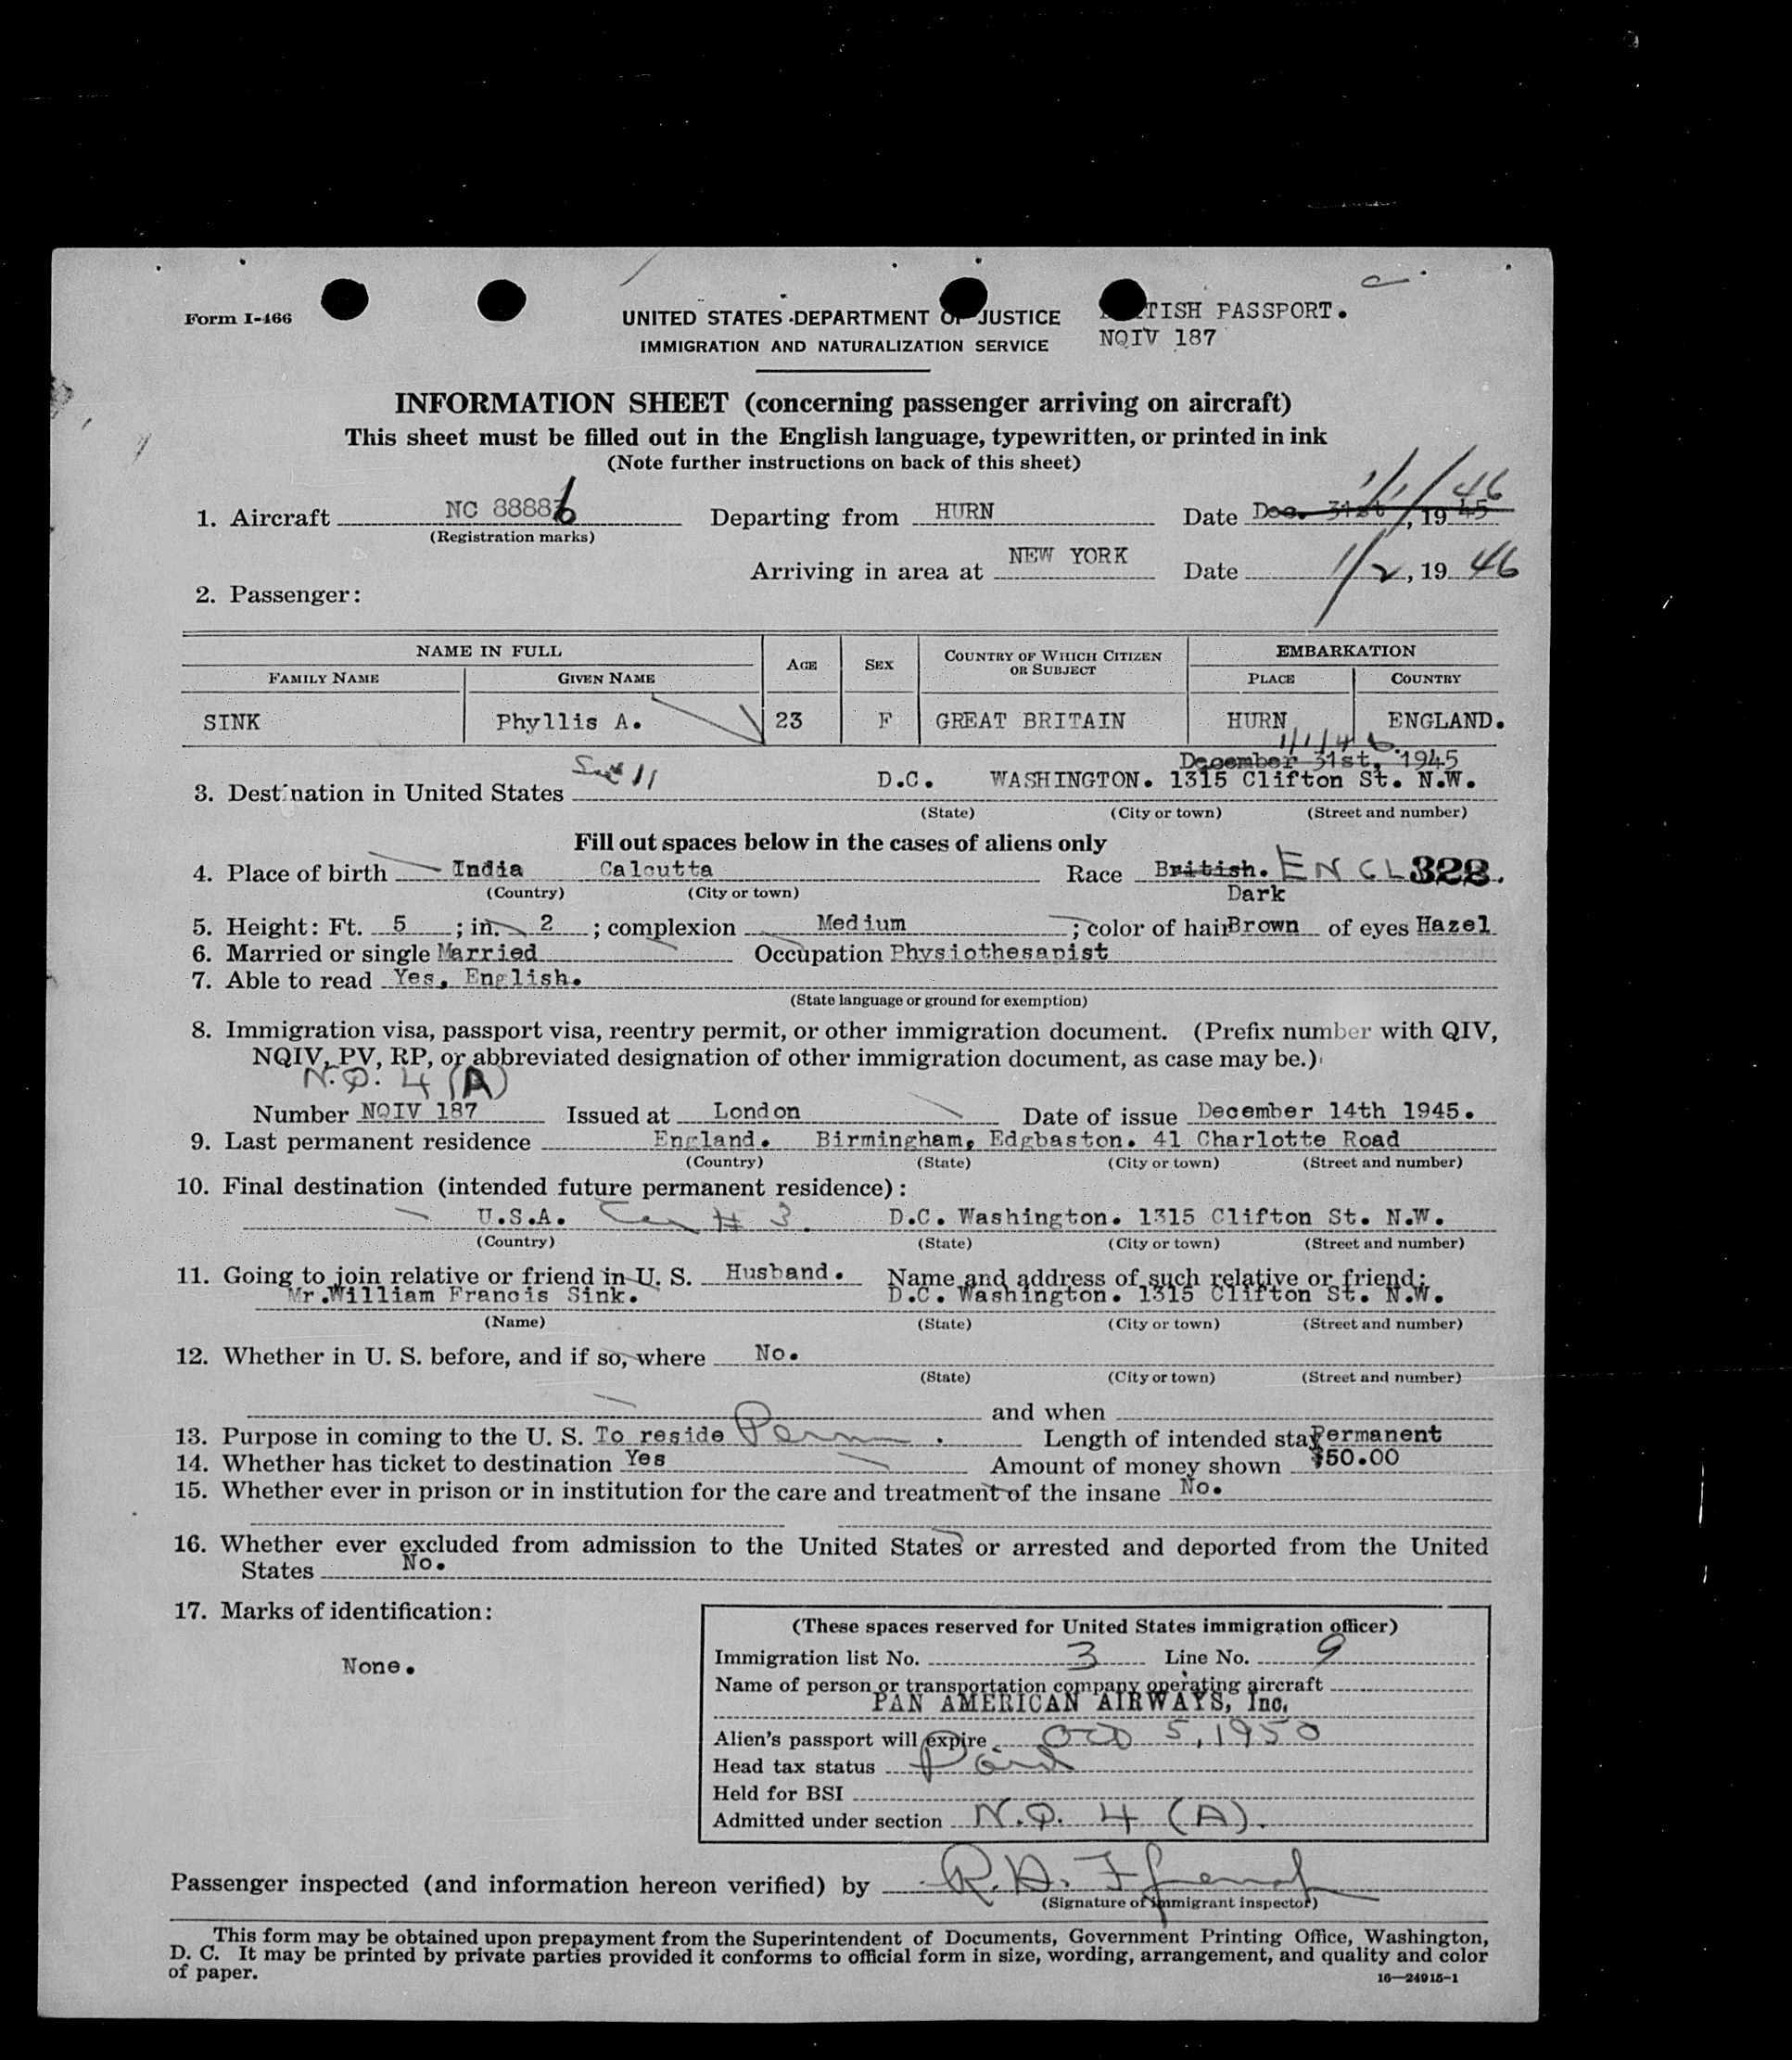 Form I-466
UNITED STATES DEPARTMENT OF JUSTICE
IMMIGRATION AND NATURALIZATION SERVICE
TISH PASSPORT.
NQIV 187
INFORMATION SHEET (concerning passenger arriving on aircraft)
This sheet must be filled out in the English language, typewritten, or printed in ink
(Note further instructions on back of this sheet)
1/1/46
1. Aircraft NC 88886 Departing from HURN Date Dec. 31st, 19 45
(Registration marks)
Arriving in area at NEW YORK Date 1/2, 19 46
2. Passenger:
NAME IN FULL AGE SEX COUNTRY OF WHICH CITIZEN OR SUBJECT EMBARKATION
FAMILY NAME GIVEN NAME PLACE COUNTRY
SINK Phyllis A. 23 F GREAT BRITAIN HURN ENGLAND.
1/1/46.
December 31st, 1945
3. Destination in United States D.C. WASHINGTON. 1315 Clifton St. N.W.
(State) (City or town) (Street and number)
Fill out spaces below in the cases of aliens only
4. Place of birth India Calcutta Race British. ENGL 328.
(Country) (City or town) Dark
5. Height: Ft. 5; in. 2; complexion Medium; color of hair Brown of eyes Hazel
6. Married or single Married Occupation Physiothesapist
7. Able to read Yes, English.
(State language or ground for exemption)
8. Immigration visa, passport visa, reentry permit, or other immigration document. (Prefix number with QIV,
NQIV, PV, RP, or abbreviated designation of other immigration document, as case may be.)
N.Q. 4 (A)
Number NQIV 187 Issued at London Date of issue December 14th 1945.
9. Last permanent residence England. Birmingham, Edgbaston. 41 Charlotte Road
(Country) (State) (City or town) (Street and number)
10. Final destination (intended future permanent residence):
U.S.A. # 3. D.C. Washington. 1315 Clifton St. N.W.
(Country) (State) (City or town) (Street and number)
11. Going to join relative or friend in U. S. Husband. Name and address of such relative or friend:
Mr.William Francis Sink. D.C. Washington. 1315 Clifton St. N.W.
(Name) (State) (City or town) (Street and number)
12. Whether in U. S. before, and if so, where No.
(State) (City or town) (Street and number)
and when
13. Purpose in coming to the U. S. To reside Perm. Length of intended stay Permanent
14. Whether has ticket to destination Yes Amount of money shown $50.00
15. Whether ever in prison or in institution for the care and treatment of the insane No.
16. Whether ever excluded from admission to the United States or arrested and deported from the United
States No.
17. Marks of identification:
None.
(These spaces reserved for United States immigration officer)
Immigration list No. 3 Line No. 9
Name of person or transportation company operating aircraft
PAN AMERICAN AIRWAYS, Inc.
Alien's passport will expire Oct 5, 1950
Head tax status Paid
Held for BSI
Admitted under section N.Q. 4 (A).
Passenger inspected (and information hereon verified) by
(Signature of immigrant inspector)
This form may be obtained upon prepayment from the Superintendent of Documents, Government Printing Office, Washington,
D. C. It may be printed by private parties provided it conforms to official form in size, wording, arrangement, and quality and color
of paper.
16—24915-1